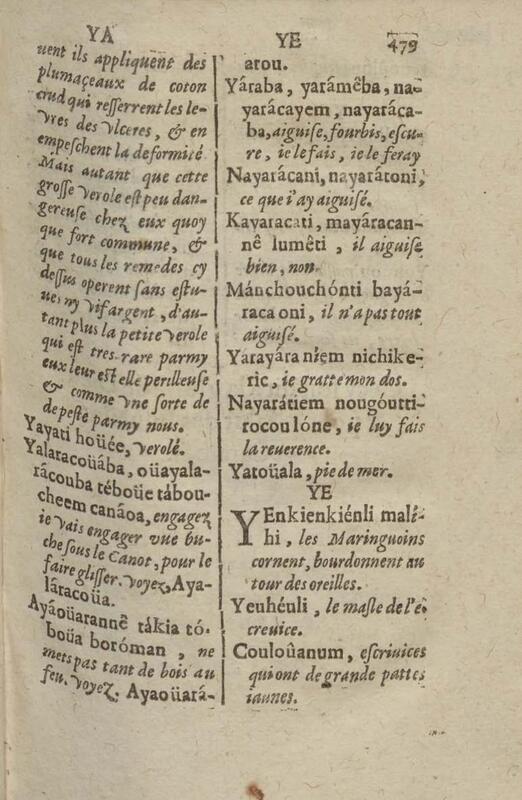 YA
uent ils appliquent des
plumaçeaux de coton
crud qui resserrent les le-
vres des vlceres, & en
empeschent la deformité
Mais autant que cette
grosse verole est peu dan-
gereuse chez eux quoy
que fort commune, &
que tous les remedes cy
dessus operent sans estu-
ues ny vifargent, d'au-
tant plus la petite verole
qui est tres-rare parmy
eux leur est elle perilleuse
& comme vne sorte de
de peste parmy nous.
Yayati hoüée, verolé.
Yalaracoüába, oüayala-
rácouba téboüe tábou-
cheem canáoa, engagez
ie vais engager vue bu-
che sous le Canot, pour le
faire glisser. voyez, Aya-
láracoüa.
Ayáoüarannê tákia tó-
boüa boróman, ne
mets pas tant de bois au
feu. voyez. Ayaoüará-
YE 479
arou.
Yáraba, yarámêba, na-
yarácayem, nayaráca-
ba, aiguise, fourbis, escu-
re, ie le fais, ie le feray
Nayarácani, nayarátoni,
ce que i'ay aiguisé.
Kayaracati, mayáracan-
nê lumêti, il aiguise
bien, non.
Mánchouchónti bayá-
raca oni, il n'a pas tout
aiguisé.
Yárayára niem nichike-
ric, ie gratte mon dos.
Nayarátiem nougóutti-
rocou lóne, ie luy fais
la reuerence.
Yatoüala, pie de mer.
YE
YEnkienkiénli malí-
hi, les Maringuoins
cornent, bourdonnent au
tour des oreilles.
Yeuhéuli, le masle de l'é
creuice.
Couloûanum, escriuices
qui ont de grande pattes
iaunes.